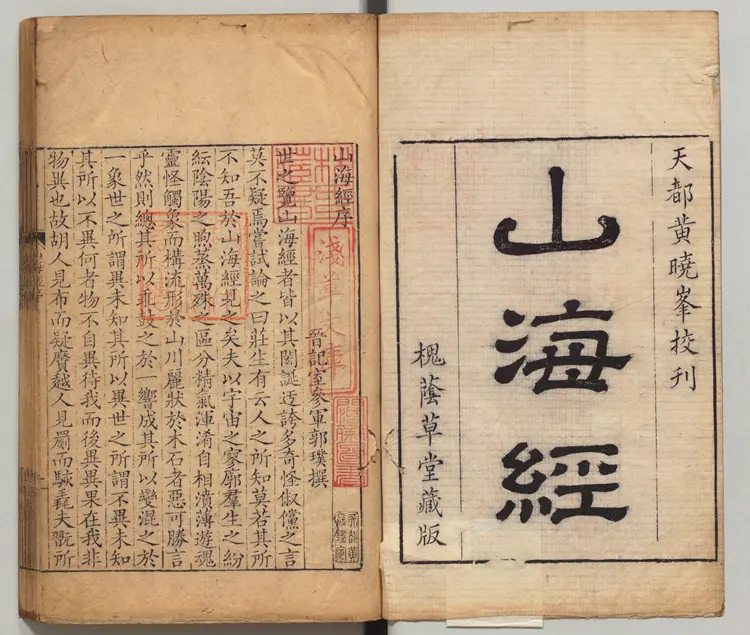 天都黄曉峯挍刋
山海經
槐蔭草堂藏版
山海經序
晉記室參軍郭璞撰
世之覽山海經者皆以其閎誕迃誇多奇怪俶儻之言
莫不疑焉嘗試論之曰莊生有云人之所知莫若其所
不知吾於山海經見之矣夫以宇宙之寥廓羣生之紛
紜陰陽之喣蒸萬殊之區分精氣渾淆自相濆薄遊魂
靈怪觸象而構流形於山川麗狀於木石者惡可勝言
乎然則總其所以乖鼓之於一響成其所以變混之於
一象世之所謂異未知其所以異世之所謂不異未知
其所以不異何者物不自異待我而後異異果在我非
物異也故胡人見布而疑黂越人見罽而駭毳夫翫所
山海經序
淺草文庫